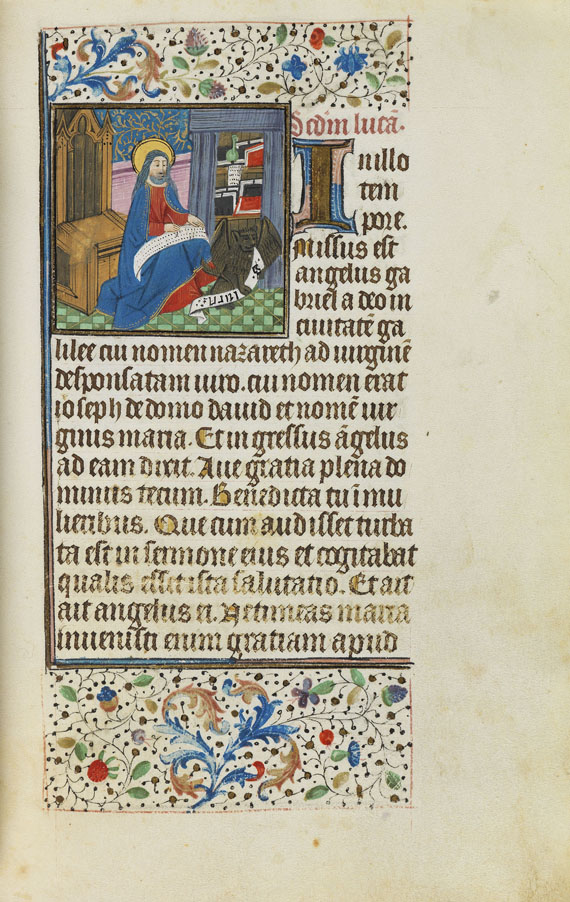 Scdm lucã.
In illo
tem
pore.
Missus est
angelus ga
briel a deo in
ciuitatẽ ga
lilee cui nomen nazareth ad uirginẽ
desponsatam uiro. cui nomen erat
ioseph de domo dauid et nomẽ uir
ginis maria. Et in gressus ãgelus
ad eam dixit. Aue gratia plena do
minus tecum. Benedicta tu i mu
lieribus. Que cum audisset turba
ta est in sermone eius et cogitabat
qualis esset ista salutatio. Et ait
ait angelus ei. Ne timeas maria
inuenisti enim gratiam apud